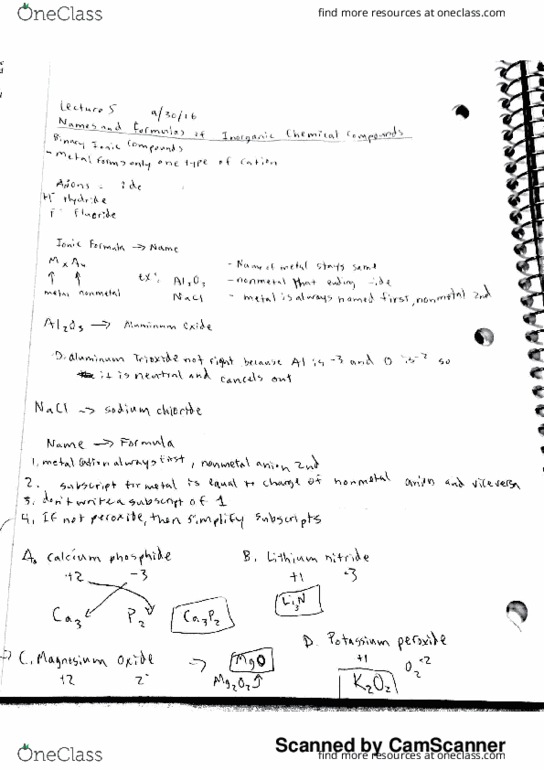 OneClass
find more resources at oneclass.com
Lecture 5 9/30/16
Names and Formulas of Inorganic Chemical Compounds
Binary Ionic Compounds
- Metal forms only one type of cation
Anions - ide
H⁻ Hydride
F⁻ Fluoride
Ionic Formula → Name
ex:
metal nonmetal
Al₂O₃
NaCl
- Name of metal stays same
- nonmetal ending -ide
- metal is always named first, nonmetal 2nd
Al₂O₃ → Aluminum oxide
Dialuminum Trioxide not right because Al is -3 and O is -2 so
it is neutral and cancels out
NaCl → sodium chloride
Name → Formula
1. metal cation always first, nonmetal anion 2nd
2. subscript for metal is equal to charge of nonmetal anion and vice versa
3. don't write a subscript of 1
4. If not peroxide, then simplify subscripts
A. Calcium phosphide B. Lithium nitride
+2 -3 +1 -3
Ca₃ P₂ Ca₃P₂ Li₃N
D. Potassium peroxide
C. Magnesium Oxide → MgO +1 O₂⁻²
+2 2⁻ Mg₂O₂ K₂O₂
Scanned by CamScanner
OneClass
find more resources at oneclass.com